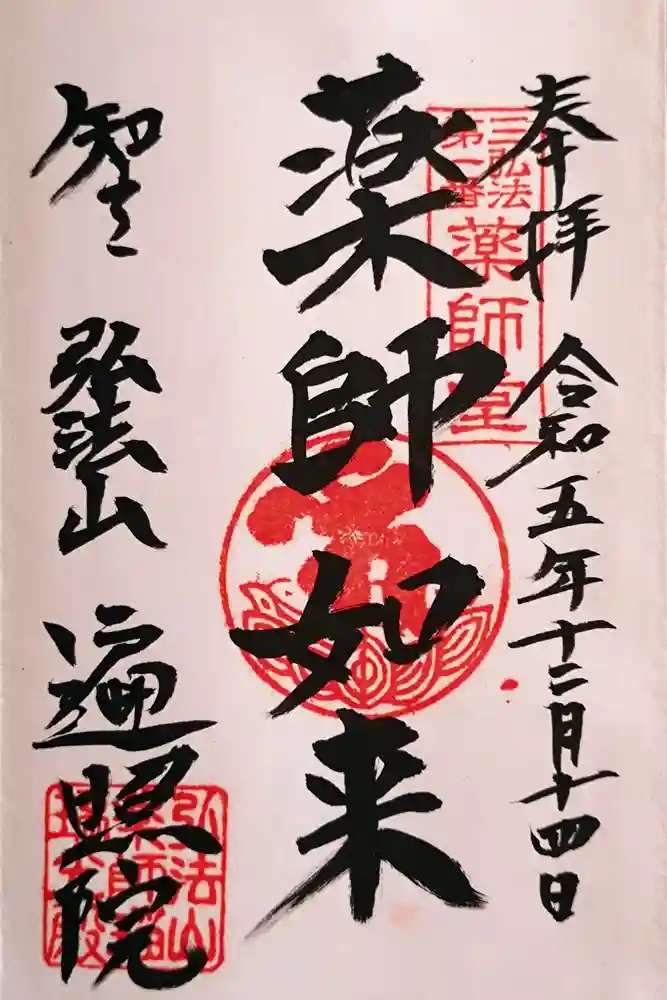 奉拝 令和五年十二月十四日
三弘法
第一番
薬師堂
薬師如来
弘法山 遍照院
弘法山